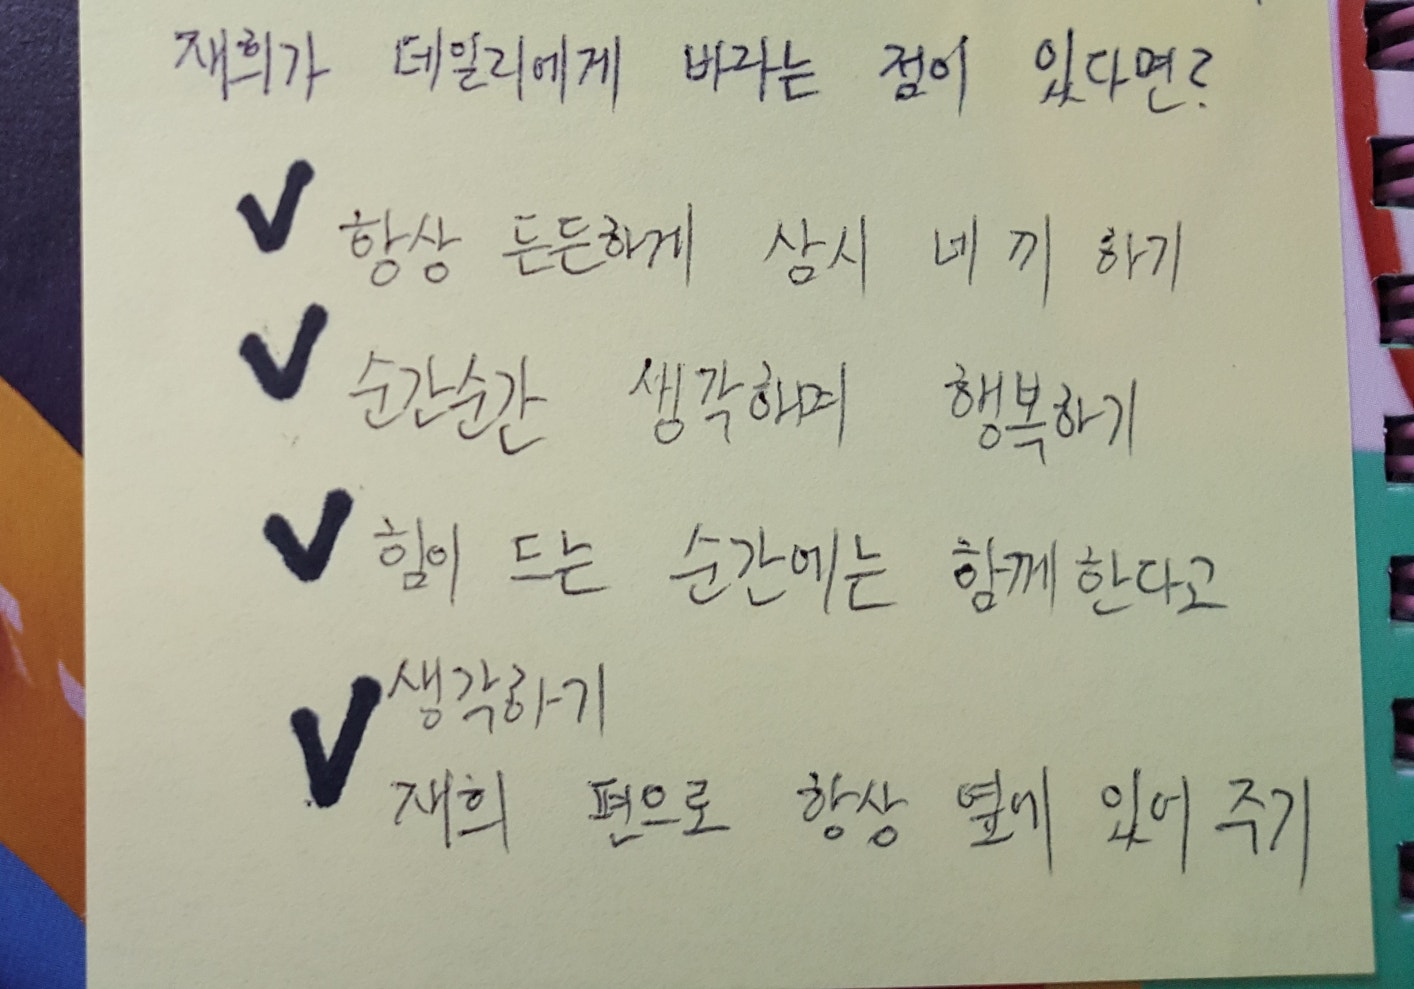 재희가 데일리에게 바라는 점이 있다면?
항상 든든하게 삼시 네 끼 하기
순간순간 생각하며 행복하기
힘이 드는 순간에는 함께한다고
생각하기
재희 편으로 항상 옆에 있어 주기